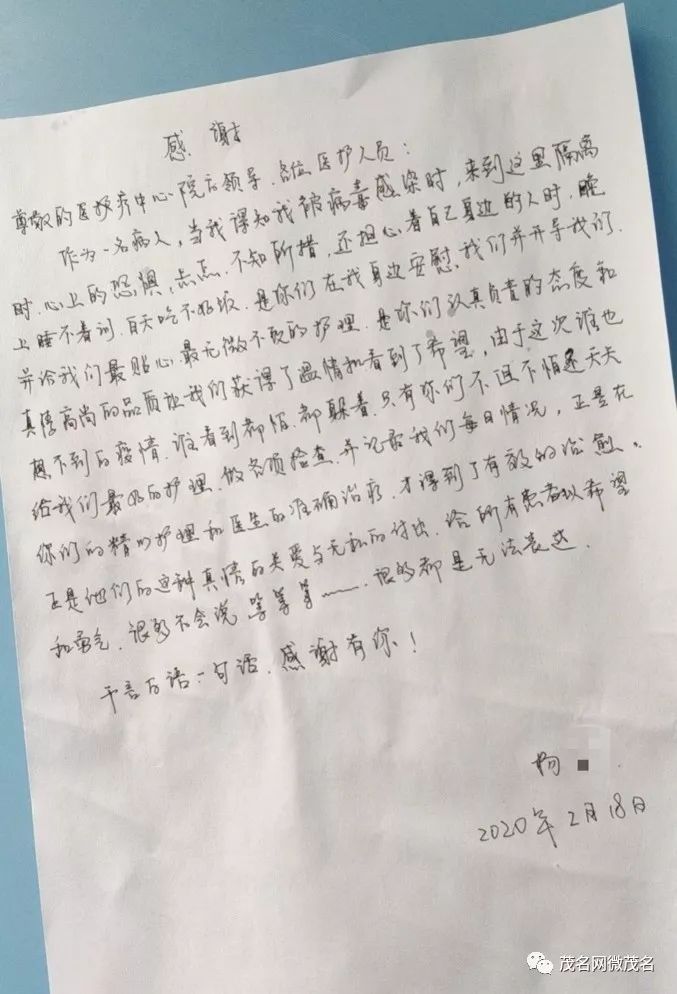 感谢
尊敬的医护疗中心院方领导、各位医护人员：
作为一名病人，当我得知我被病毒感染时，来到这里隔离
时，心上的恐惧，忐忑、不知所措，还担心着自己身边的人时，晚
上睡不着训、白天吃不好饭、是你们在我身边安慰、我们并开导我们．
并给我们最贴心最无微不致的护理．是你们认真负责的态度和
真诚高尚的品质让我们获得了温情和看到了希望，由于这次谁也
想不到的疫情．谁看到都怕．都躲着．只有你们不退不怕还天天
给我们最好的护理．做各项检查．并记录我们每日情况，正是在
你们的精心护理和医生的准确治疗，才得到了有效的治愈。
正是他们的这种真情的关爱与无私的付出．给所有患者以希望
和勇气．很多不会说 等等等……．很多都是无法表达．
千言万语一句话．感谢有你！
杨
2020年2月18日
茂名网微茂名